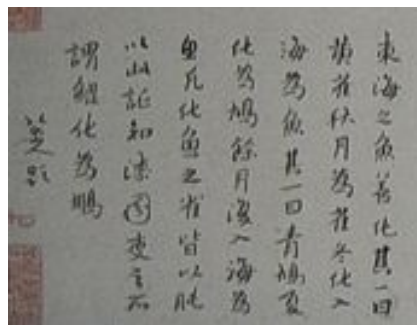 東海之魚善化其一曰
黃雀秋月為雀冬化入
海為魚其一曰青鳩夏
化為鳩餘月復入海為
魚凡化魚之雀皆以肫
以此証知漆園吏之所
謂鯤化為鵬
八大山人題